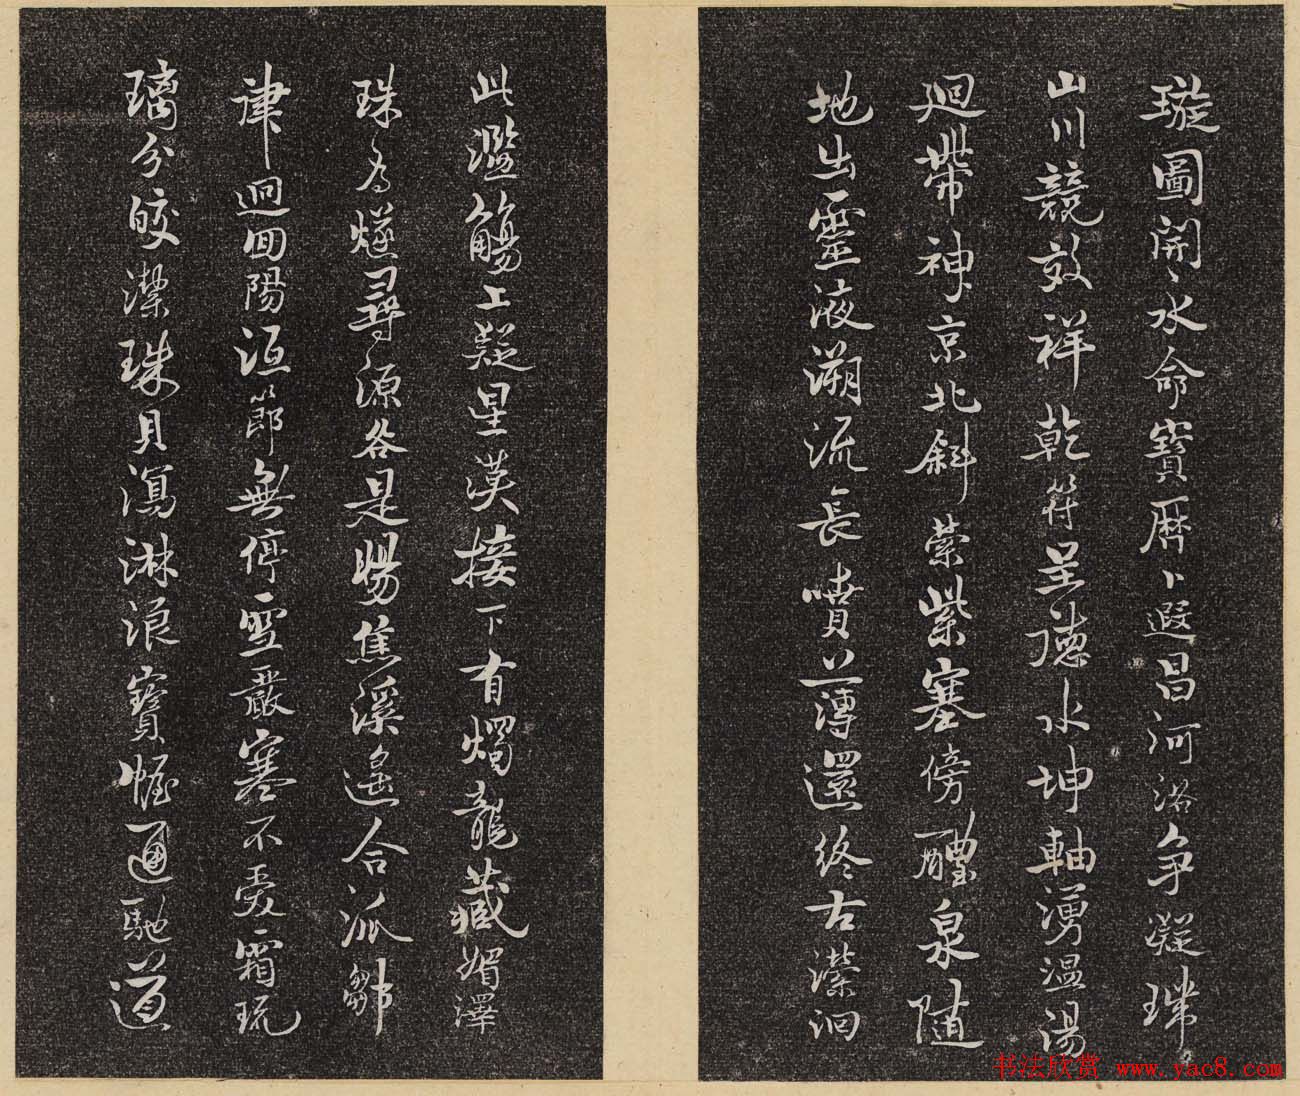 璇圖開〻水命寶曆卜遐昌河洛争凝瑞
山川競效祥乾符呈德水坤軸湧温湯
廻帶神京北斜縈紫塞傍醴泉随
地出靈液溯流長噴薄還終古瀠洄
此濫觴上疑星漢接下有燭龍藏媚澤
珠為燧尋源谷是暘焦溪遥合派鄒
律迥回陽沍節無停雪嚴寒不受霜琉
璃分皎潔珠貝瀉淋浪寶幄通馳道
书法欣赏 www.yac8.com